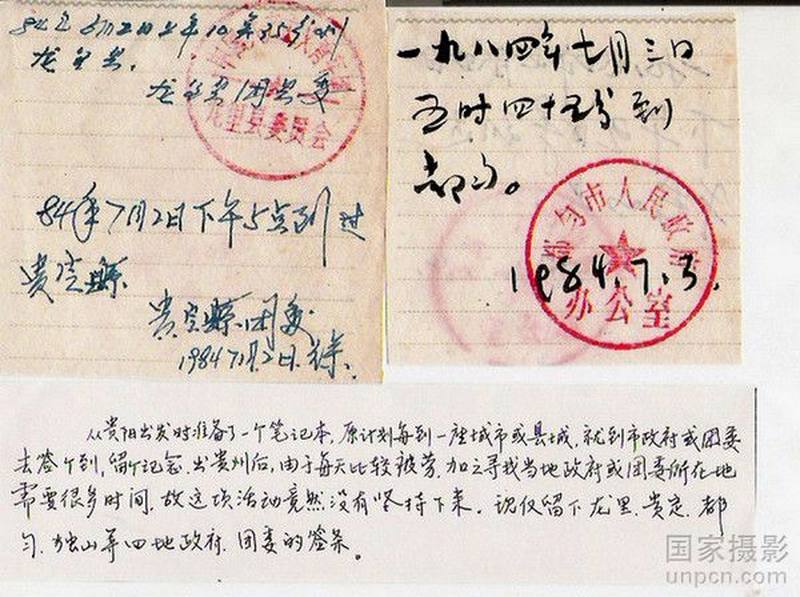 84年7月2日上午10点35分到
龙里县.
龙里县团县委
龙里县委员会
84年7月2日下午5点到过
贵定县
贵定县团委
1984 7月2日.
一九八四年七月三日
五时四十五分到
都匀。
都匀市人民政府
办公室
1984.7.3.
从贵阳出发时准备了一个笔记本,原计划每到一座城市或县城,就到市政府或团委
去签个到,留个记念.出贵州后,由于每天比较疲劳,加之寻找当地政府或团委所在地
需要很多时间,故这项活动竟然没有坚持下来。现仅留下龙里.贵定.都
匀.独山等四地政府.团委的签条。
国家摄影
unpcn.com